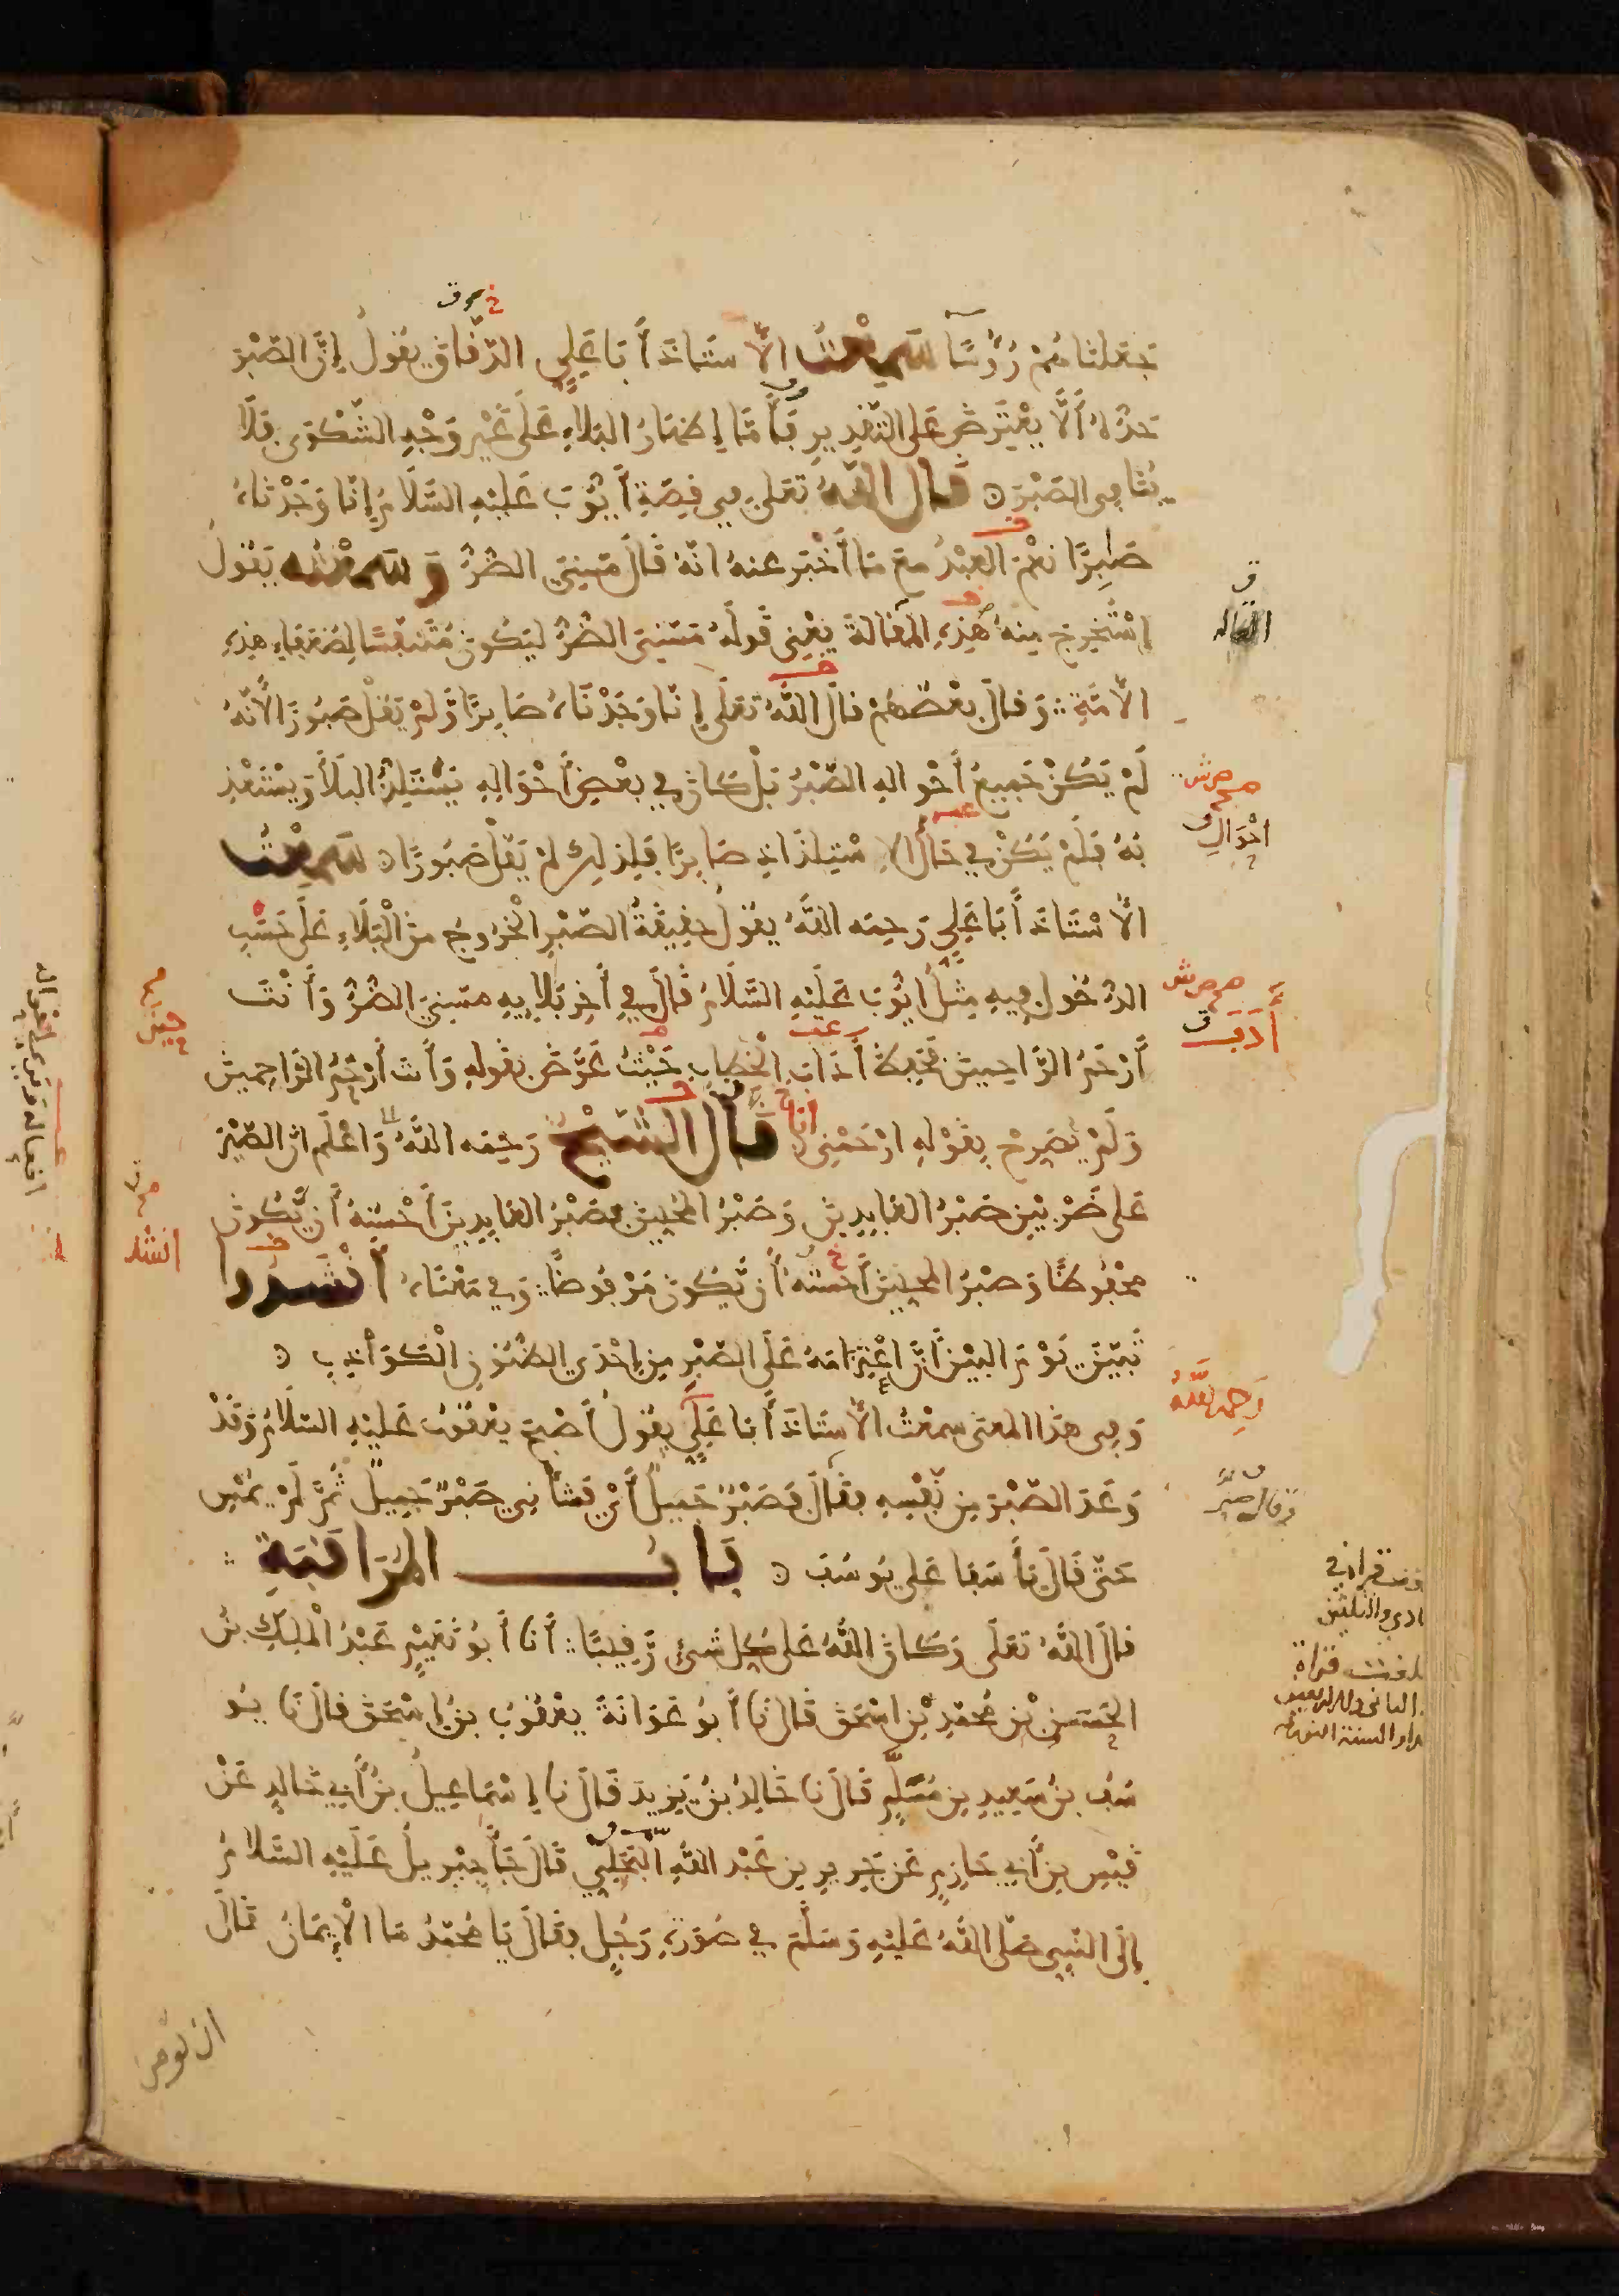 فجعلناهم رُؤُسًا سَمِعْتُ الأستاذ أبا عَلِيٍّ الدّقّاق يقولُ إنَّ الصّبْرَ
حَدُّهُ ألَّا يَعْتَرِضَ عَلى التّقدِيرِ فأمّا إظهارُ البَلاءِ عَلَى غَيْرِ وَجْهِ الشّكْوَى فلَا
يُنَافِي الصّبْرَ قال اللّهُ تعلى في قِصّةِ أيُّوبَ عَلَيْهِ السَّلَامُ إنّا وَجَدْنَاهُ
صَابِرًا نِعْمَ العَبْدُ مع مَا أخْبَرَ عنهُ انّهُ قَالَ مَسّنِيَ الضُّرُّ وسَمِعْتُه يَقُولُ
اِسْتَخْرِجَ مِنهُ هَذِهِ المَقَالَةَ يَعْنِي قَولَهُ مَسّنِيَ الضُّرُّ لِيَكُونَ مُتَنَفَّسًا لِضُعَفَاءِ هذِهِ
الأمّةِ وَقالَ بَعْضُهُمْ قالَ اللّهُ تعلَى إنّا وَجَدْنَاهُ صَابِرًا وَّلَمْ يَقُلْ صَبُورًا لأنّهُ
لَمْ يَكُنْ جَمِيعُ أحْوالِهِ الصّبْرُ بَلْ كَانَ فِي بَعْضِ أحْوَالِهِ يَسْتَلِذُّ البَلَأَ وَيَسْتَعْذِ
بُهُ فَلَمْ يَكُنْ في حَالِ الاِسْتِلذَاذِ صَابِرًا فَلِذَلِكَ لَمْ يَقُلْ صَبُورًا سَمِعْتُ
الأسْتَاذَ أبَا عَلِيٍّ رَحِمَه اللّهُ يقولُ حقِيقَةُ الصّبْرِ الخُرُوجُ منَ الْبَلَاءِ عَلَى حَسْبِ
الدُّخُولِ فِيهِ مِثْلُ أيُّوبَ عَلَيْهِ السَّلَامُ قَالَ فِي أخِرِ بَلَايِهِ مسّنِيَ الضُّرُّ وَأنْتَ
أرْحَمُ الرَّاحِمِينَ فَحَفِظَ أدَابَ الْخِطَابِ حَيْثُ عَرَّضَ بقَولِهِ وَأنتَ أرْحَمُ الرَّاحِمِينَ
وَلَمْ يُصَرِحْ بِقَوْلِهِ ارْحَمْنِي قال الشَيْخُ رَحِمَه اللّهُ وَاعْلَم انّ الصّبْرَ
عَلى ضَرْبَيْنِ صَبْرُ العَابِدِينَ وَصَبْرُ المُحِبِّينَ فصَبْرُ العَابِدِينَ أحْسَنُهُ أن يَّكُونَ
مَحْفُوظًا وَصَبْرُ المُحِبِّينَ أحسَنُهُ أن يَّكُونَ مَرْفُوضًا وَفِي مَعْنَاهُ أنْشَدُوا
تَبَيَّنَ يَوْمَ البَيْنِ أنَّ اعْتِزَامَهُ عَلَى الصّبْرِ مِن إحْدَى الظُّنُونِ الْكَوَاذِبِ
وَفي هذا المعنَى سمعْتُ الأستَاذَ أبا عَلِيٍّ يقولُ أصْبَحَ يعْقُوبُ عَلَيْهِ السّلَامُ وَقَدْ
وَعَدَ الصّبْرَ مِن نّفْسِهِ فقَالَ فَصَبْرٌ جَمِيلٌ أيْ فَشأنِي صَبْرٌ جَمِيلٌ ثُمَّ لَمْ يُمْسِ
حَتّى قَالَ يَأسَفَا عَلى يُوسُفَ بَابُ المُرَاقَبَةِ
قالَ اللّهُ تعَلَى وَكَانَ اللّهُ عَلى كُلِّ شَيْءٍ رَّقِيبًا أنا أبُو نُعَيْمٍ عَبْدُ الْمَلِكِ بْنُ
الحَسَنِ بْنِ مُحَمّدِ بْنِ اسْحَقَ قَالَ نَا أبُو عَوَانَةَ يَعْقُوبُ بنُ إسْحَقَ قالَ نَا يُو
سُفُ بنُ سَعِيدِ بنِ مُسَلَّمٍ قَالَ نا خَالِدُ بْنُ يَزِيدَ قَالَ نا إسْمَاعِيلُ بْنُ أبِي خَالِدٍ عَنْ
قَيْسِ بنِ أبِي حَازِمٍ عَن جَرِيرِ بنِ عَبْدِ اللّهِ البَجَلِيِّ قَالَ جَأَ جِبْرِيلُ عَلَيْهِ السَّلَامُ
إلَى النّبِي صَلّى اللّهُ عَلَيْهِ وَسَلَّمَ فِي صُورَةِ رَجُلٍ فقَالَ يَا مُحَمّدُ مَا الْإيمَانُ قَالَ
ان تومن
أحْوَالِ
انشد
رَحِمَه اللّهُ